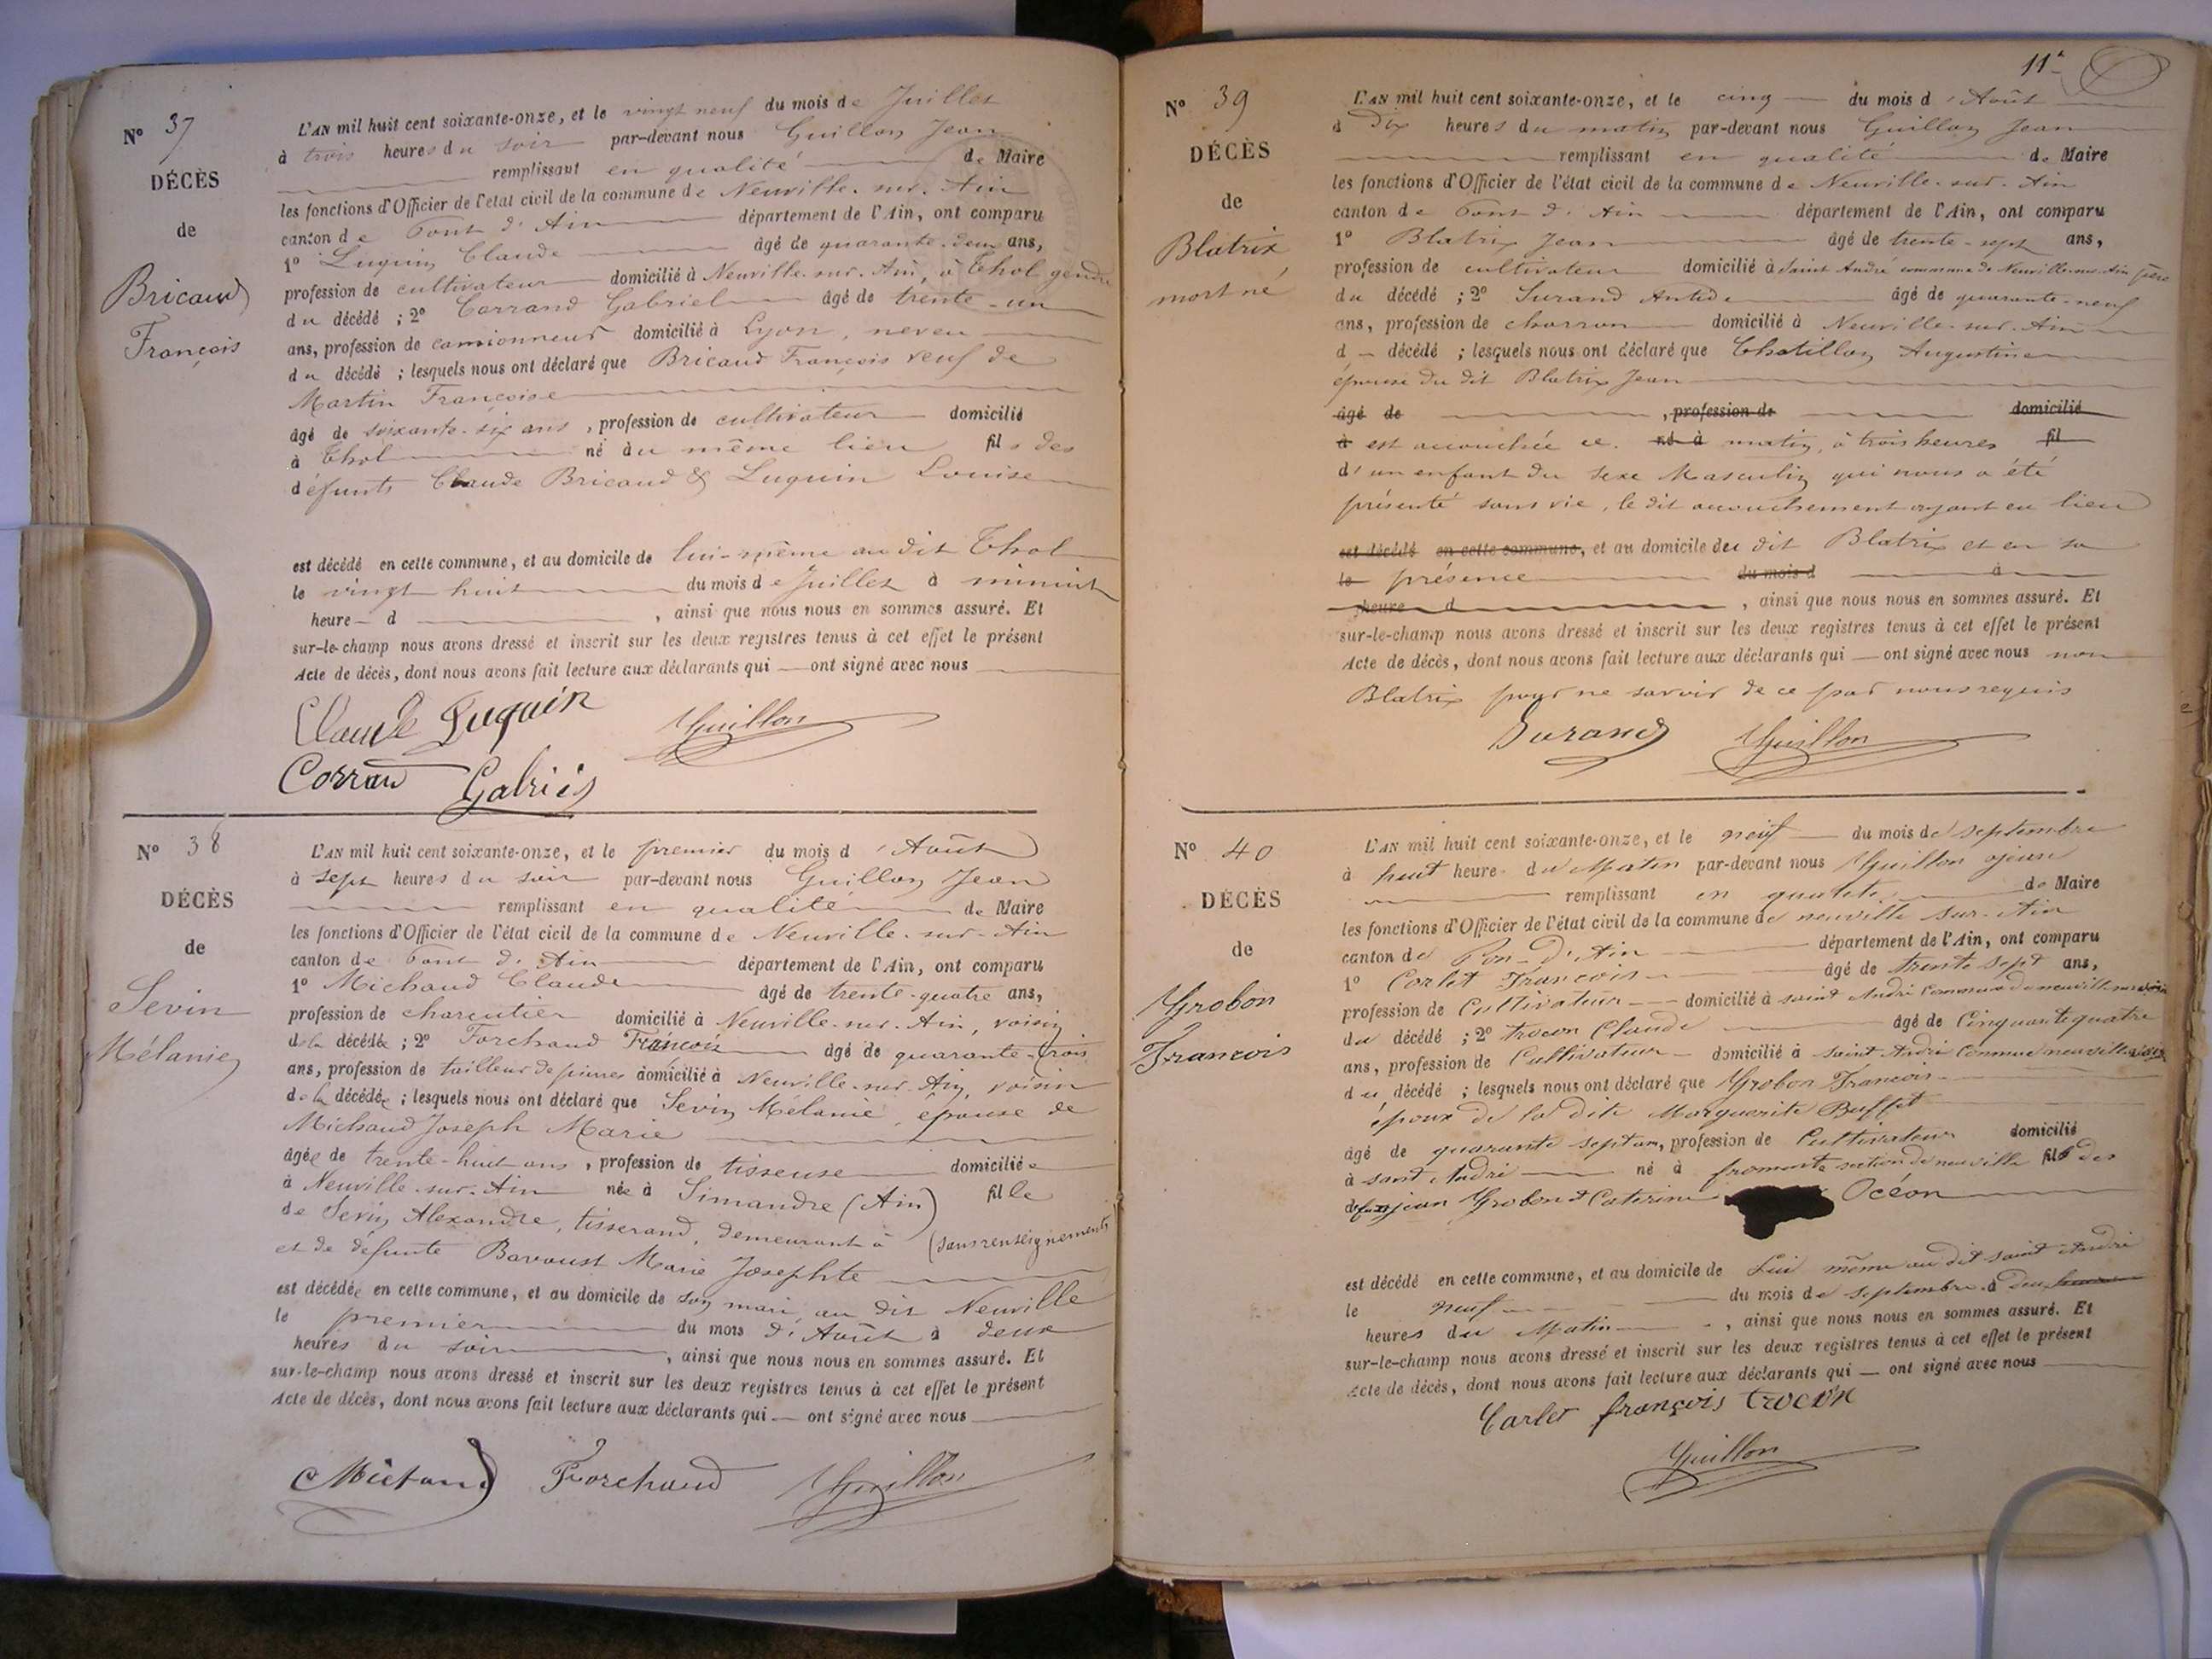 N° 37
DÉCÈS
de
Bricaud
François
L'AN mil huit cent soixante-onze, et le vingt neuf du mois de Juillet
à trois heures du soir par-devant nous Guillon Jean
remplissant en qualité de Maire
les fonctions d'Officier de l'état civil de la commune de Neuville-sur-Ain
canton de Pont d'Ain département de l'Ain, ont comparu
1° Luquin Claude âgé de quarante-deux ans,
profession de cultivateur domicilié à Neuville-sur-Ain, à Thol gendre
du décédé ; 2° Carrand Gabriel âgé de trente-un
ans, profession de camionneur domicilié à Lyon, neveu
du décédé ; lesquels nous ont déclaré que Bricaud François veuf de
Martin Françoise
âgé de soixante-six ans, profession de cultivateur domicilié
à Thol né au même lieu fils des
défunts Claude Bricaud & Luquin Louise
est décédé en cette commune, et au domicile de lui-même au dit Thol
le vingt huit du mois de Juillet à minuit
heure d , ainsi que nous nous en sommes assuré. Et
sur-le-champ nous avons dressé et inscrit sur les deux registres tenus à cet effet le présent
Acte de décès, dont nous avons fait lecture aux déclarants qui ont signé avec nous
Claude Luquin Guillon
Corran Gabriel
N° 38
DÉCÈS
de
Sevin
Mélanie
L'AN mil huit cent soixante-onze, et le premier du mois d'Août
à sept heures du soir par-devant nous Guillon Jean
remplissant en qualité de Maire
les fonctions d'Officier de l'état civil de la commune de Neuville-sur-Ain
canton de Pont d'Ain département de l'Ain, ont comparu
1° Michaud Claude âgé de trente-quatre ans,
profession de charcutier domicilié à Neuville-sur-Ain, voisin
de la décédée ; 2° Forchaud François âgé de quarante-trois
ans, profession de tailleur de pierres domicilié à Neuville-sur-Ain, voisin
de la décédée ; lesquels nous ont déclaré que Sevin Mélanie, épouse de
Michaud Joseph Marie
âgée de trente-huit ans, profession de tisseuse domiciliée
à Neuville-sur-Ain née à Simandre (Ain) fille
de Sevin Alexandre, tisserand, demeurant à (sans renseignements
et de défunte Bavoust Marie Josephte
est décédée en cette commune, et au domicile de son mari, au dit Neuville
le premier du mois d'Août à deux
heures du soir , ainsi que nous nous en sommes assuré. Et
sur-le-champ nous avons dressé et inscrit sur les deux registres tenus à cet effet le présent
Acte de décès, dont nous avons fait lecture aux déclarants qui ont signé avec nous
Michaud Forchaud Guillon
11
N° 39
DÉCÈS
de
Blatrix
mort né
L'AN mil huit cent soixante-onze, et le cinq du mois d'Août
à Dix heures du matin par-devant nous Guillon Jean
remplissant en qualité de Maire
les fonctions d'Officier de l'état civil de la commune de Neuville-sur-Ain
canton de Pont d'Ain département de l'Ain, ont comparu
1° Blatrix Jean âgé de trente-sept ans,
profession de cultivateur domicilié à Saint André commune de Neuville-sur-Ain père
du décédé ; 2° Durand Antide âgé de quarante-neuf
ans, profession de charron domicilié à Neuville-sur-Ain
d décédé ; lesquels nous ont déclaré que Chatillon Augustine
épouse du dit Blatrix Jean
âgé de , profession de domicilié
à est accouchée ce né à matin, à trois heures fil
d'un enfant du sexe Masculin qui nous a été
présenté sans vie, le dit accouchement ayant eu lieu
est décédé en cette commune, et au domicile deu dit Blatrix et en sa
le présence du mois d à
heure d , ainsi que nous nous en sommes assuré. Et
sur-le-champ nous avons dressé et inscrit sur les deux registres tenus à cet effet le présent
Acte de décès, dont nous avons fait lecture aux déclarants qui ont signé avec nous non
Blatrix pour ne savoir de ce par nous requis
Durand Guillon
N° 40
DÉCÈS
de
Grobon
Francois
L'AN mil huit cent soixante-onze, et le neuf du mois de septembre
à huit heure du Matin par-devant nous Guillon jean
remplissant en qualité de Maire
les fonctions d'Officier de l'état civil de la commune de neuville sur-Ain
canton de Pon-d'Ain département de l'Ain, ont comparu
1° Carlet Francois âgé de trente sept ans,
profession de Cultivateur domicilié à saint André Commune de neuville sur ain
du décédé ; 2° trocon Claude âgé de Cinquante quatre
ans, profession de Cultivateur domicilié à saint André Commune neuville
du décédé ; lesquels nous ont déclaré que Grobon Francois
époux de la dite Marguerite Buffet
âgé de quarante sept an, profession de Cultivateur domicilié
à saint André né à fromente section de neuville fils des
defunt jean Grobon & Caterine Océon
est décédé en cette commune, et au domicile de Lui même au dit saint André
le neuf du mois de septembre à deux heures
heures du Matin , ainsi que nous nous en sommes assuré. Et
sur-le-champ nous avons dressé et inscrit sur les deux registres tenus à cet effet le présent
Acte de décès, dont nous avons fait lecture aux déclarants qui ont signé avec nous
Carlet françois trocon
Guillon